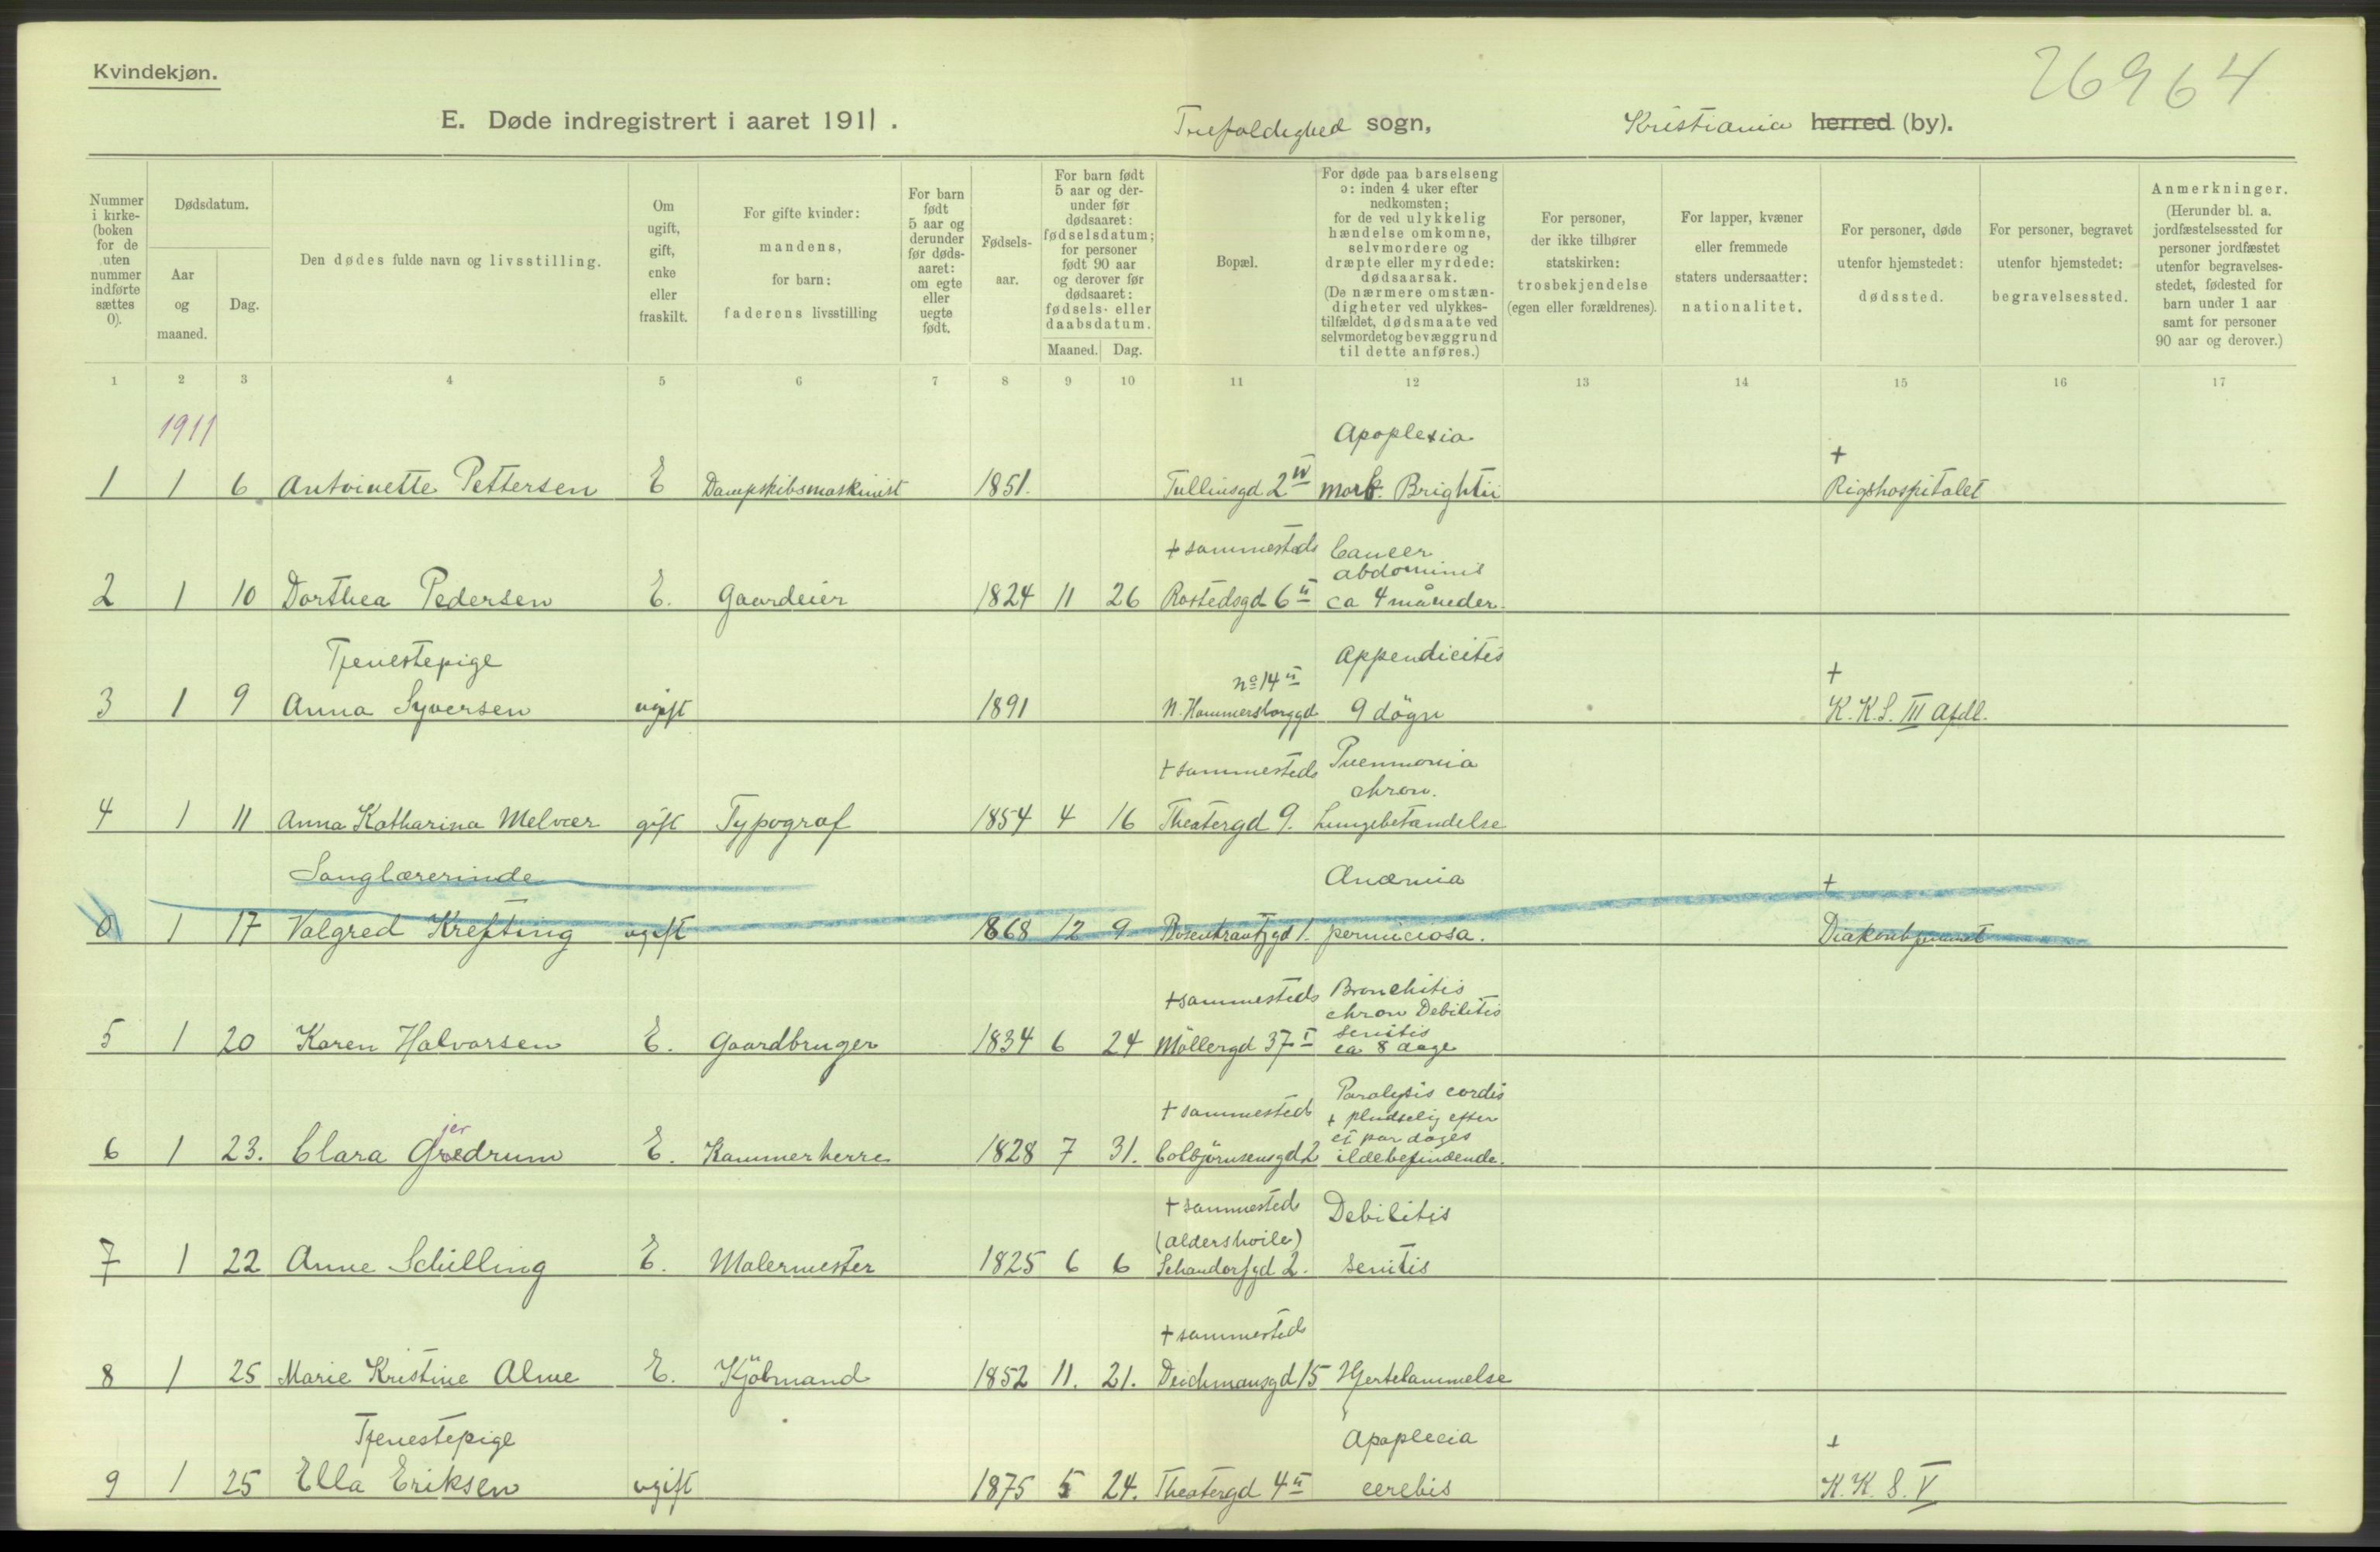 Kvindekjøn.
26964
E. Døde indregistrert i aaret 1911.
Trefoldighed sogn,
Kristiania herred (by).
Nummer i kirke- (boken for de uten nummer indførte sættes 0).
Dødsdatum.
Aar og maaned.
Dag.
Den dødes fulde navn og livsstilling.
Om ugift, gift, enke eller fraskilt.
For gifte kvinder: mandens, for barn: faderens livsstilling
For barn født 5 aar og derunder før døds- aaret: om egte eller uegte født.
Fødsels- aar.
For barn født 5 aar og der- under før dødsaaret: fødselsdatum; for personer født 90 aar og derover før dødsaaret: fødsels- eller daabsdatum.
Maaned. Dag.
Bopæl.
For døde paa barselseng ɔ: inden 4 uker efter nedkomsten; for de ved ulykkelig hændelse omkomne, selvmordere og dræpte eller myrdede: dødsaarsak. (De nærmere omstæn- digheter ved ulykkes- tilfældet, dødsmaate ved selvmordet og bevæggrund til dette anføres.)
For personer, der ikke tilhører statskirken: trosbekjendelse (egen eller forældrenes).
For lapper, kvæner eller fremmede staters undersaatter: nationalitet.
For personer, døde utenfor hjemstedet: dødssted.
For personer, begravet utenfor hjemstedet: begravelsessted.
Anmerkninger. (Herunder bl. a. jordfæstelsessted for personer jordfæstet utenfor begravelses- stedet, fødested for barn under 1 aar samt for personer 90 aar og derover.)
1 2 3 4 5 6 7 8 9 10 11 12 13 14 15 16 17
1911
Apoplexia
+
1 1 6 Antoinette Pettersen E Dampskibsmaskinist 1851. Tullinsgd 2 IV morb. Brightii Rigshospitalet
+ sammesteds Cancer
abdominis
2 1 10 Dorthea Pedersen E. Gaardeier 1824 11 26 Rostedsgd 6 II ca 4 måneder.
Tjenestepige Appendicites
no 14 II +
3 1 9 Anna Syversen ugift 1891 N. Hammersborggd 9 dögn K.K.S. III afdl.
+ sammesteds Pnenmonia
chron.
4 1 11 Anna Katharina Melvær gift Typograf 1854 4 16 Theatergd 9. Lungebetændelse
Sanglærerinde Anæmia +
0 1 17 Valgred Krefting ugift 1868 12 9 Rosenkrantzgd 1. perniciosa.
+ sammesteds Bronchitis
chron Debilitis
senitis
5 1 20 Karen Halvorsen E. Gaardbruger 1834 6 24 Möllergd 37 I ca 8 dage
Paralysis cordis
+ sammested + pludselig efter
jer et par dages
6 1 23. Clara Gredrum E. Kammerherre 1828 7 31. Colbjörnsensgd 2 ildebefindende.
+ sammested Debilitis
(aldershvile)
7 1 22 Anne Schilling E. Malermester 1825 6 6 Schandorfgd 2. senitis
+ sammested
8 1 25 Marie Kristine Alme E. Kjöbmand 1852 11. 21. Deichmansgd 15 Hjertelammelse
Tjenestepige Apoplecia +
9 1 25 Ella Eriksen ugift 1875 5 24. Theatergd 4 II cerebis K.K.S. V